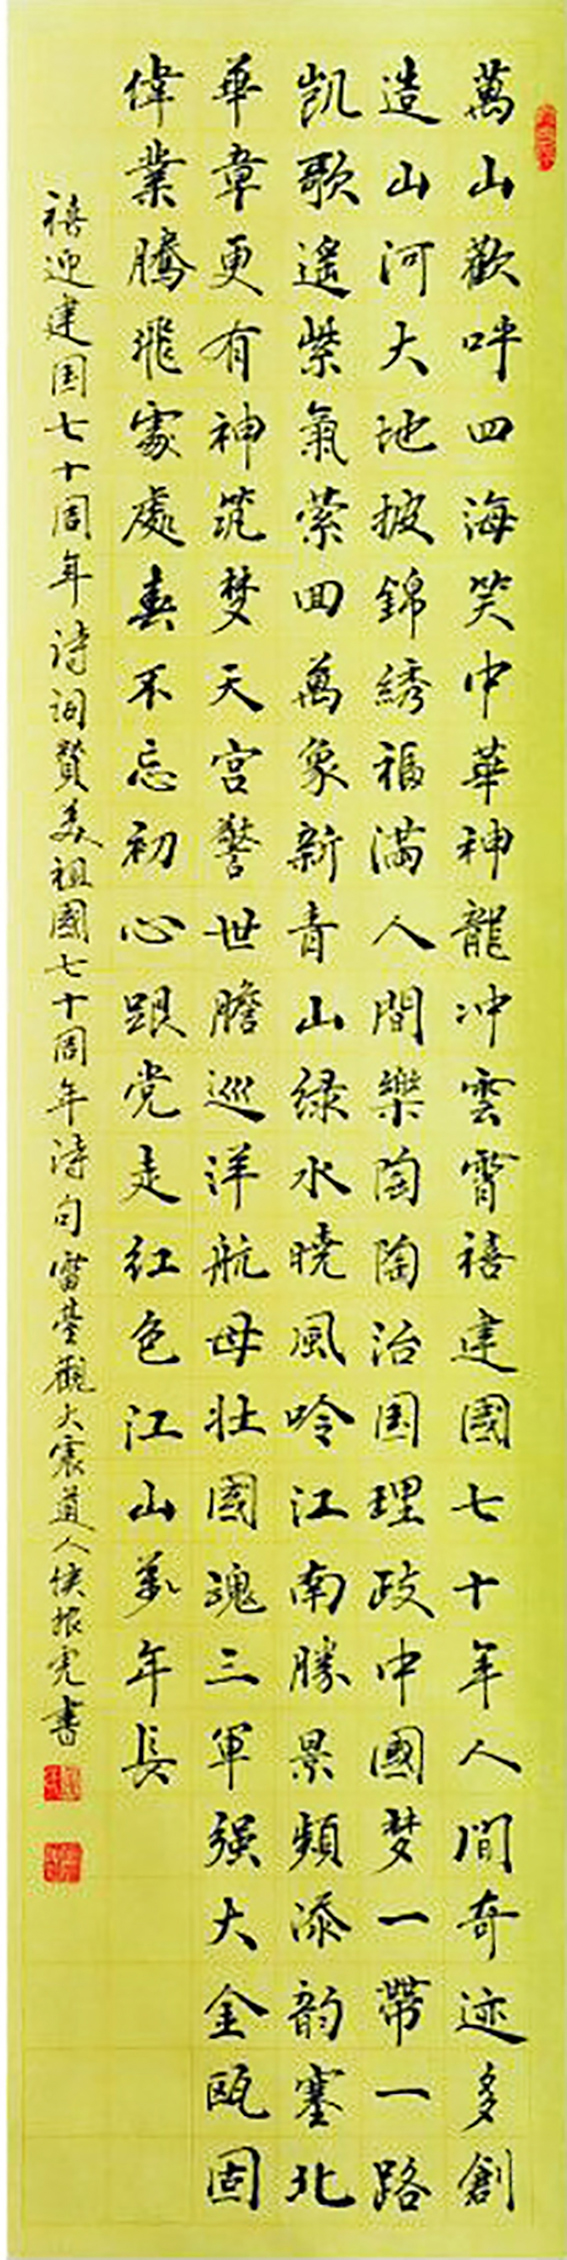 萬山歡呼四海笑中華神龍冲雲霄禧建國七十年人間奇迹多創
造山河大地披錦綉福满人間樂陶陶治国理政中國梦一帶一路
凯歌遥紫氣萦回萬象新青山绿水曉風吟江南勝景頻添韵塞北
華章更有神筑梦天宫警世瞻巡洋航母壮國魂三軍强大金瓯固
偉業腾飛處處春不忘初心跟党走红色江山万年長
禧迎建国七十周年诗词贊美祖國七十周年诗句雷臺觀大震道人侯振書